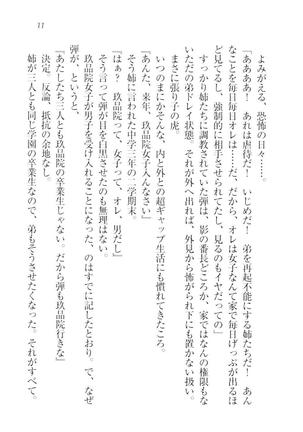 11
よみがえる、恐怖の日々……。
「ああああ！　あれは虐待だ！　いじめだ！　弟を再起不能にする姉たちだ！　あん
なことを毎日毎日オレは……だ、だから、オレは女子なんて家で毎日げっぷが出るほ
ど見てるし、強制的に相手させられてたし、だから、見るのもイヤだっての」
すっかり姉たちに調教されていた弾は、影の番長どころか、家ではなんの権限もな
いただの弟ドレイ状態。それが外へ出れば、外見から怖がられ下にも置かない扱い。
まさに張り子の虎。
いつのまにか、内と外との超ギャップ生活にも慣れてきたころ。
「あんた、来年、玖品院女子入んなさい」
そう姉に言われた中学三年の二学期末。
「はぁ？　玖品院って、女子って、オレ、男だし」
そう言って弾が目を白黒させたのも無理はない。
玖品院女子が男子を受け入れることになった、のはすでに記したとおり。で、なぜ
弾が、というと。
「あたしたち三人とも玖品院の卒業生じゃない。だから弾も玖品院行きな」
決定。反論、抵抗の余地なし。
姉が三人とも同じ学園の卒業生なので、弟もそうさせたくなった。それがすべて。